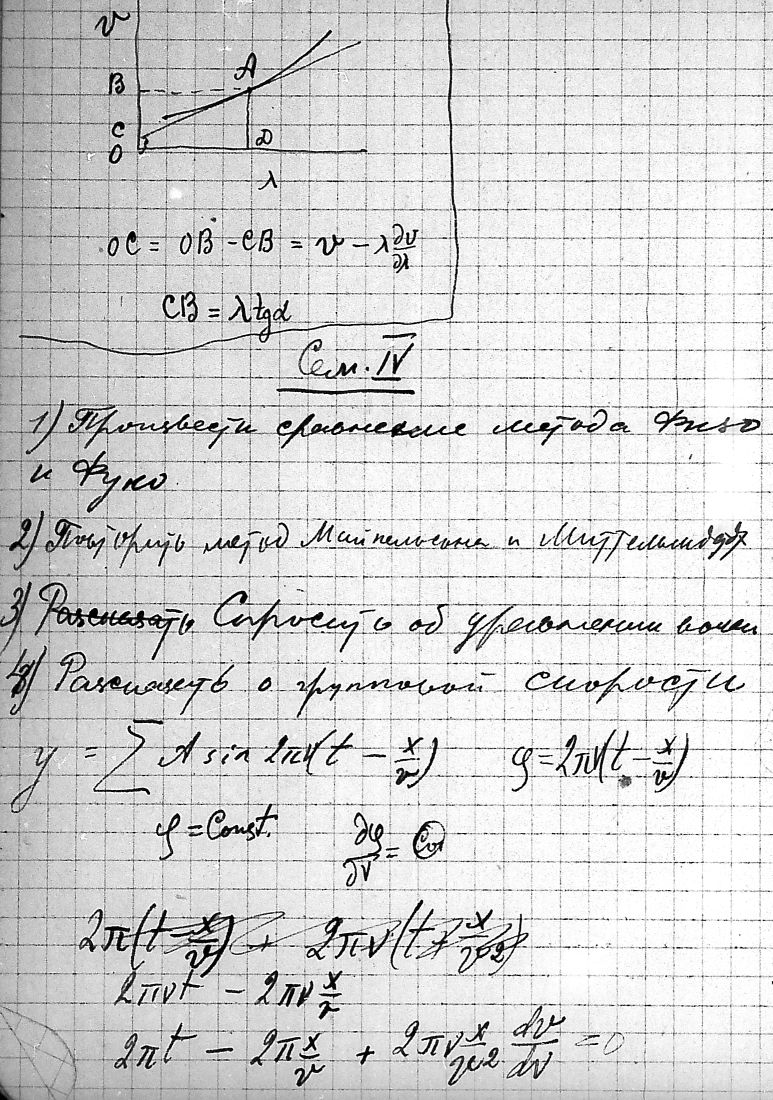 v
A
B
C
O
D
λ
OC = OB - CB = v - λ ∂v/∂λ
CB = λ tgα
Сем. IV
1) Произвести сравнение метода Физо
и Фуко
2) Повторить метод Майкельсона и Миттельштедта
3) Рассказать Спросить об уравнении волны
4) Рассказать о групповой скорости
y = ∑ A sin 2πν(t - x/v) φ = 2πν(t - x/v)
φ = Const. ∂φ/∂ν =
2π(t - x/v) + 2πν(t + x/v2)
2πνt - 2πν x/v
2πt - 2π x/v + 2πν x/v2 dv/dν = 0